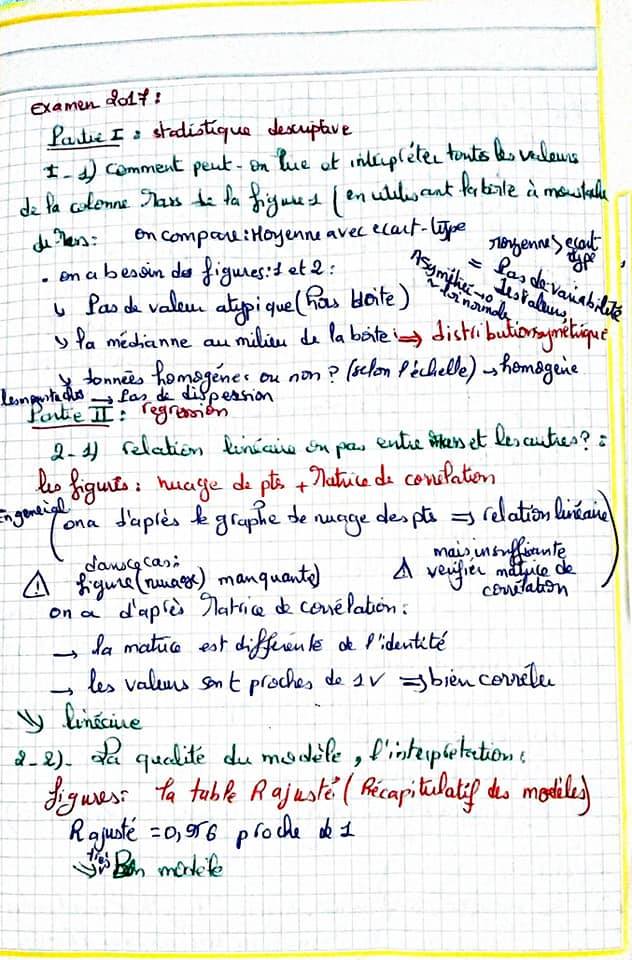 Examen 2017 :
Partie I : statistique descriptive
I - 1) Comment peut-on lire et interpréter toutes les valeurs
de la colonne Mass de la figure 1 (en utilisant la boite à moustache
de Mass : on compare : Moyenne avec ecart-type
Moyenne > ecart type
= Pas de variabilité des valeurs,
Asymétrie → 0
≈ loi normale
. on a besoin des figures : 1 et 2 :
↳ Pas de valeur atypique (hors boite)
↳ la médianne au milieu de la boite ⇒ distribution symétrique
↳ données homogénes ou non ? (selon l'échelle) → homogéne
les moustaches → Pas de dispersion
Partie II : regression
2-1) relation linéaire ou pas entre Mass et les autres ? :
les figures : nuage de pts + Matrice de corrélation
En general
(on a d'après le graphe de nuage des pts ⇒ relation linéaire)
mais insuffisante
⚠ vérifier matrice de
corrélation
dans ce cas :
⚠ figure (nuage) manquante)
on a d'après Matrice de corrélation :
→ la matrice est différente de l'identité
→ les valeurs sont proches de 1 ⇒ bien corréler
⇘ linéaire
2-2) - La qualité du modèle, l'interprétation :
figures : la table R ajusté² (Récapitulatif des modèles)
R ajusté = 0,956 proche de 1
⇘ très Bon modèle